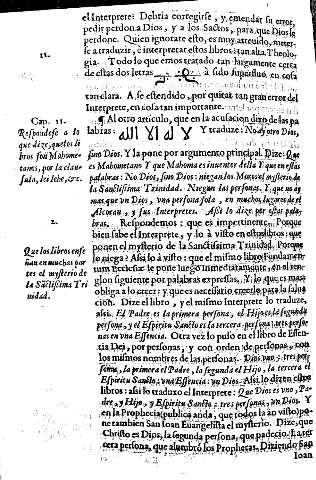 el Interprete: Debria corregirse, y emendar su error,
pedir perdon a Dios, y a los Sactos, para que Dios le
perdone. Quien ignorare esto, es muy atreuido, meter-
se a traduzir, e interpretar estos libros: tan alta Theolo-
gia. Todo lo que emos tratado tan largamente cerca
de estas dos letras à sido superfluo en cosa
tan clara. A se estendido, por quitar tan gran error del
Interprete, en cosa tan importante.
¶ Al otro articulo, que en la acusacion dizo de las pa
labras: لا اله الا الله Y traduze: No ay otro Dios,
sino Dios. Y la pone por argumento principal. Dize: Que
es Mahometano Y que Mahoma es inuentor della Y que en estas
palabras: No Dios, sino Dios: niegan los Moros el mysterio de
la Sanctissima Trinidad. Niegan las personas. Y, que no ay
mas que un Dios, una persona sola, en muchos lugares de el
Alcoran, y sus Interpretes. Assi lo dize por estas pala-
bras. Respondemos: que es impertinente. Porque
bien sabe el Interprete, y lo à visto en estos libros: que
ponen el mysterio de la Sanctissima Trinidad. Porque
lo niega? Assi lo à visto: que el mismo libro Fundamen-
tum Ecclesiæ le pone luego inmediatamente, en el ren-
glon siguiente por palabras expressas, Y lo que mas
obliga a lo creer: y que es necessario creerlo para la salua
cion. Dize el libro, y el mismo Interprete lo traduze,
assi. El Padre es la primera persona, el Hijo es la segunda
persona, y el Espiritu Sancto es la tercera persona tres perso-
nas en una Essencia. Otra vez lo puso en el libro de Essen-
tia Dei, por personas, y con orden de personas, con
los mismos nombres de las personas. Dios uno: tres per-
sonas, la primera el Padre, la segunda el Hijo, la tercera el
Espiritu Sancto, una Essencia: un Dios. Assi lo dizen estos
libros: assi lo traduzo el Interprete: Que Dios es uno, Pa-
dre, y Hijo, y Espiritu Sancto: tres personas, un Dios. Y
en la Prophecia publica anda, que todos la àn visto) po-
ne tambien San Ioan Euangelista el mysterio. Dize, que
Christo es Dios, la segunda persona, que padecio. La ter
cera persona, que alumbrò los Prophetas. Diziendo San
Ioan
11.
Cap. 11.
Respondese a lo
que dize, que los li
bros son Mahome-
tanos, por la clau-
sula, los lehe, &c.
2.
Que los libros ense
ñan en muchas par
tes el mysterio de
la Sãctissima Tri
nidad.